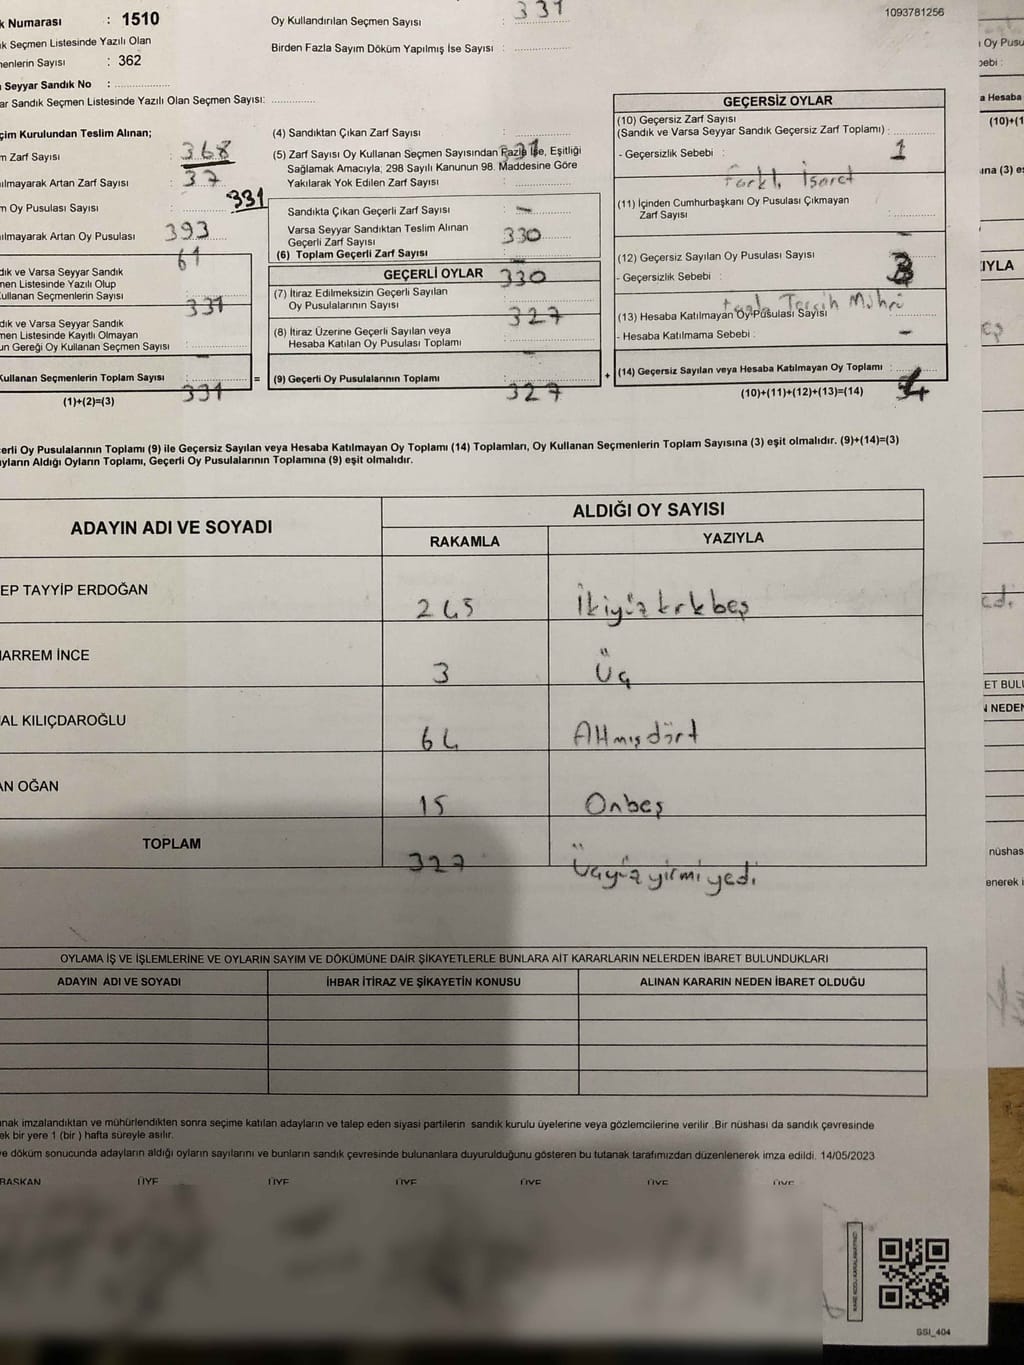 k Numarası : 1510
ık Seçmen Listesinde Yazılı Olan
nenlerin Sayısı : 362
Seyyar Sandık No :
ar Sandık Seçmen Listesinde Yazılı Olan Seçmen Sayısı:
çim Kurulundan Teslim Alınan;
m Zarf Sayısı : 368
ılmayarak Artan Zarf Sayısı : 37
m Oy Pusulası Sayısı : 331
393
ılmayarak Artan Oy Pusulası
61
dık ve Varsa Seyyar Sandık
nen Listesinde Yazılı Olup
ullanan Seçmenlerin Sayısı
331
dık ve Varsa Seyyar Sandık
nen Listesinde Kayıtlı Olmayan
un Gereği Oy Kullanan Seçmen Sayısı
Kullanan Seçmenlerin Toplam Sayısı
331
(1)+(2)=(3)
=
Oy Kullandırılan Seçmen Sayısı : 331
Birden Fazla Sayım Döküm Yapılmış İse Sayısı :
(4) Sandıktan Çıkan Zarf Sayısı :
331
(5) Zarf Sayısı Oy Kullanan Seçmen Sayısından Fazla İse, Eşitliği
Sağlamak Amacıyla, 298 Sayılı Kanunun 98. Maddesine Göre
Yakılarak Yok Edilen Zarf Sayısı :
Sandıkta Çıkan Geçerli Zarf Sayısı : -
Varsa Seyyar Sandıktan Teslim Alınan
Geçerli Zarf Sayısı : 330
(6) Toplam Geçerli Zarf Sayısı :
GEÇERLİ OYLAR
330
(7) İtiraz Edilmeksizin Geçerli Sayılan
Oy Pusulalarının Sayısı
327
(8) İtiraz Üzerine Geçerli Sayılan veya
Hesaba Katılan Oy Pusulası Toplamı
-
(9) Geçerli Oy Pusulalarının Toplamı :
327
+
1093781256
GEÇERSİZ OYLAR
(10) Geçersiz Zarf Sayısı
(Sandık ve Varsa Seyyar Sandık Geçersiz Zarf Toplamı) :
- Geçersizlik Sebebi : 1
Farklı İşaret
(11) İçinden Cumhurbaşkanı Oy Pusulası Çıkmayan
Zarf Sayısı :
-
(12) Geçersiz Sayılan Oy Pusulası Sayısı :
- Geçersizlik Sebebi : 3
Fazla Tercih Mührü
(13) Hesaba Katılmayan Oy Pusulası Sayısı :
- Hesaba Katılmama Sebebi : -
(14) Geçersiz Sayılan veya Hesaba Katılmayan Oy Toplamı :
4
(10)+(11)+(12)+(13)=(14)
erli Oy Pusulalarının Toplamı (9) ile Geçersiz Sayılan veya Hesaba Katılmayan Oy Toplamı (14) Toplamları, Oy Kullanan Seçmenlerin Toplam Sayısına (3) eşit olmalıdır. (9)+(14)=(3)
yların Aldığı Oyların Toplamı, Geçerli Oy Pusulalarının Toplamına (9) eşit olmalıdır.
ADAYIN ADI VE SOYADI
ALDIĞI OY SAYISI
RAKAMLA YAZIYLA
EP TAYYİP ERDOĞAN 245 İkiyüz kırkbeş
ARREM İNCE 3 Üç
AL KILIÇDAROĞLU 64 Altmışdört
AN OĞAN 15 Onbeş
TOPLAM 327 Üçyüz yirmiyedi
OYLAMA İŞ VE İŞLEMLERİNE VE OYLARIN SAYIM VE DÖKÜMÜNE DAİR ŞİKAYETLERLE BUNLARA AİT KARARLARIN NELERDEN İBARET BULUNDUKLARI
ADAYIN ADI VE SOYADI İHBAR İTİRAZ VE ŞİKAYETİN KONUSU ALINAN KARARIN NEDEN İBARET OLDUĞU
anak imzalandıktan ve mühürlendikten sonra seçime katılan adayların ve talep eden siyasi partilerin sandık kurulu üyelerine veya gözlemcilerine verilir .Bir nüshası da sandık çevresinde
ek bir yere 1 (bir ) hafta süreyle asılır.
ve döküm sonucunda adayların aldığı oyların sayılarını ve bunların sandık çevresinde bulunanlara duyurulduğunu gösteren bu tutanak tarafımızdan düzenlenerek imza edildi. 14/05/2023
BAŞKAN ÜYE ÜYE ÜYE ÜYE ÜYE ÜYE
SSI_404
Oy Pusu
sebi :
a Hesaba
(10)+(1
ına (3) eş
IYLA
ET BULU
N NEDEN
nüshas
enerek i